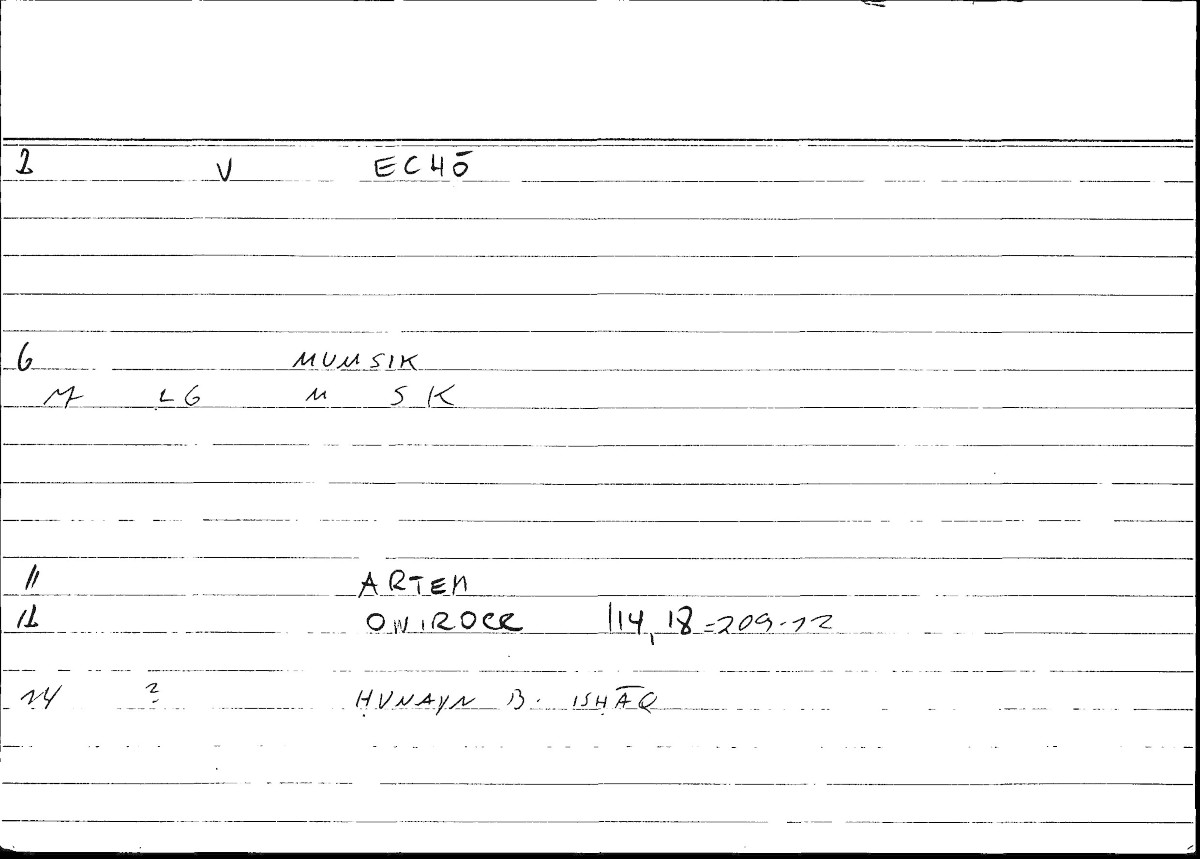 1 V ECHŌ
6 MUMSIK
M LG M S K
11 ARTEM
12 ONIROCR 114,18=209.12
14 ? ḤUNAYN B. ISḤĀQ